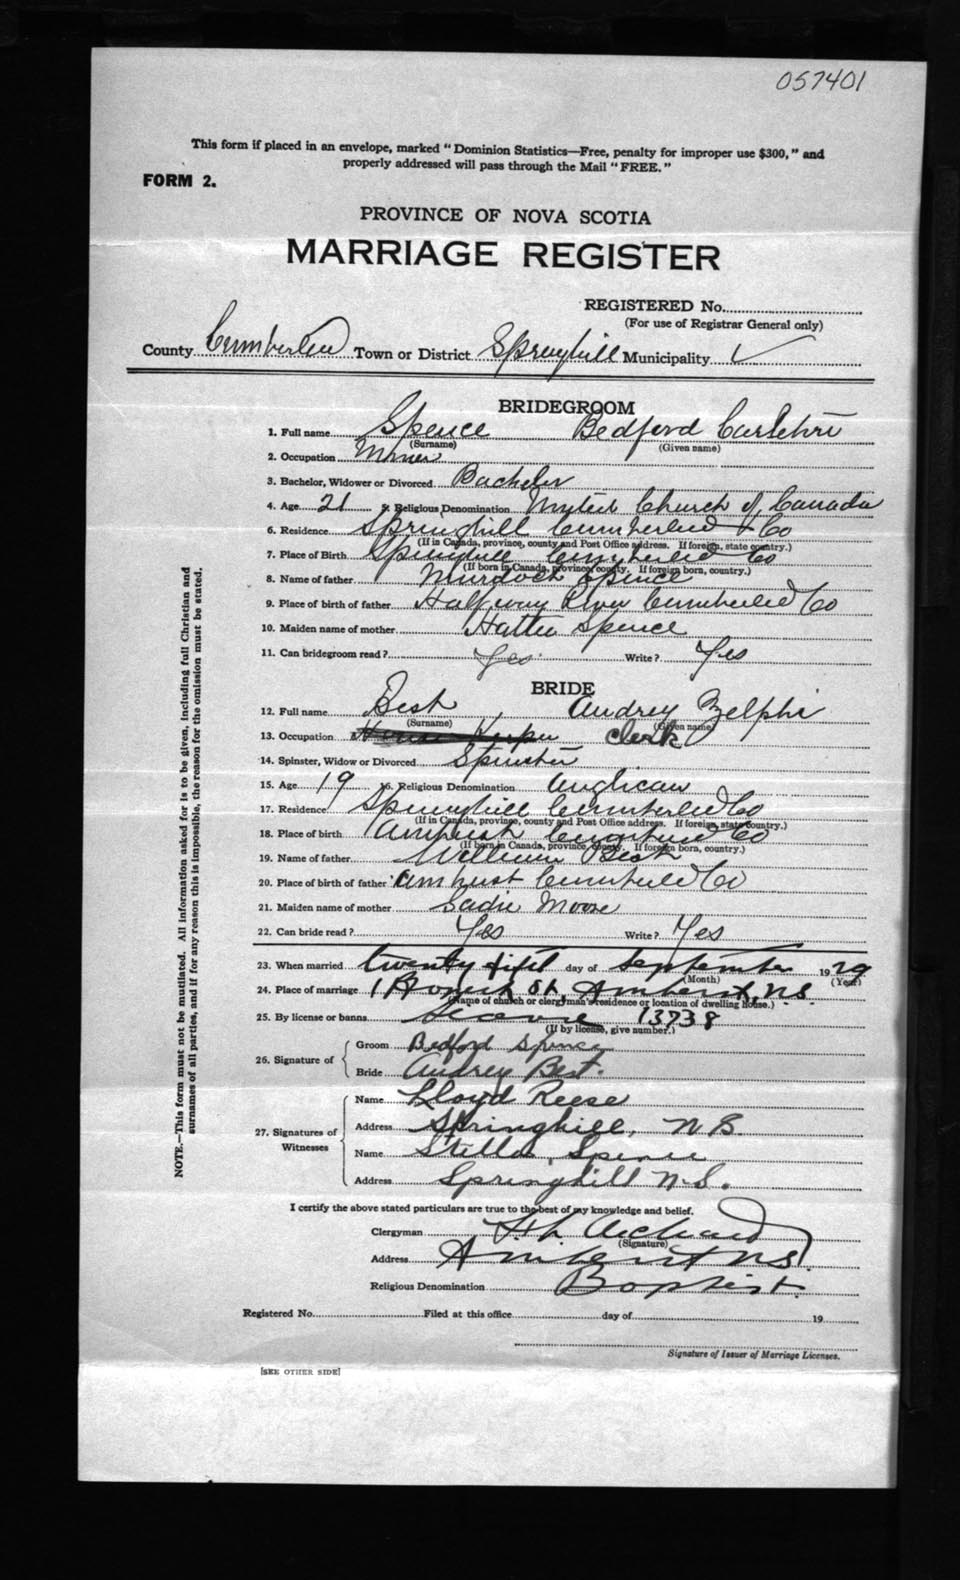 057401
This form if placed in an envelope, marked "Dominion Statistics—Free, penalty for improper use $300," and
properly addressed will pass through the Mail "FREE."
FORM 2.
PROVINCE OF NOVA SCOTIA
MARRIAGE REGISTER
REGISTERED No.
(For use of Registrar General only)
County Cumberland Town or District Springhill Municipality
BRIDEGROOM
1. Full name Spence Bedford
(Surname) (Given name)
2. Occupation Miner
3. Bachelor, Widower or Divorced Bachelor
4. Age 21 5. Religious Denomination United Church of Canada
6. Residence Springhill Cumberland Co
(If in Canada, province, county and Post Office address. If foreign, state country.)
7. Place of Birth Springhill Cumberland Co
(If born in Canada, province, county. If foreign born, country.)
8. Name of father Murdock Spence
9. Place of birth of father Halfway River Cumberland Co
10. Maiden name of mother Hattie Spence
11. Can bridegroom read? Yes Write? Yes
BRIDE
12. Full name Best Audrey Zelphi
(Surname) (Given name)
13. Occupation House Keeper Clerk
14. Spinster, Widow or Divorced Spinster
15. Age 19 16. Religious Denomination Anglican
17. Residence Springhill Cumberland Co
(If in Canada, province, county and Post Office address. If foreign, state country.)
18. Place of birth Amherst Cumberland Co
(If born in Canada, province, county. If foreign born, country.)
19. Name of father William Best
20. Place of birth of father Amherst Cumberland Co
21. Maiden name of mother Sadie Moore
22. Can bride read? Yes Write? Yes
23. When married twenty fifth day of September 1929
(Month) (Year)
24. Place of marriage St, Amherst, N.S.
(Name of church or clergyman's residence or location of dwelling house.)
25. By license or banns License 13738
(If by license, give number.)
26. Signature of
Groom Bedford Spence
Bride Audrey Best.
27. Signatures of Witnesses
Name Lloyd Reese
Address Springhill, N S
Name Stella Spence
Address Springhill N.S.
I certify the above stated particulars are true to the best of my knowledge and belief.
Clergyman
(Signature)
Address Amherst N.S.
Religious Denomination Baptist.
Registered No. Filed at this office day of 19
Signature of Issuer of Marriage Licenses.
[SEE OTHER SIDE]
NOTE.—This form must not be mutilated. All information asked for is to be given, including full Christian and
surnames of all parties, and if for any reason this is impossible, the reason for the omission must be stated.